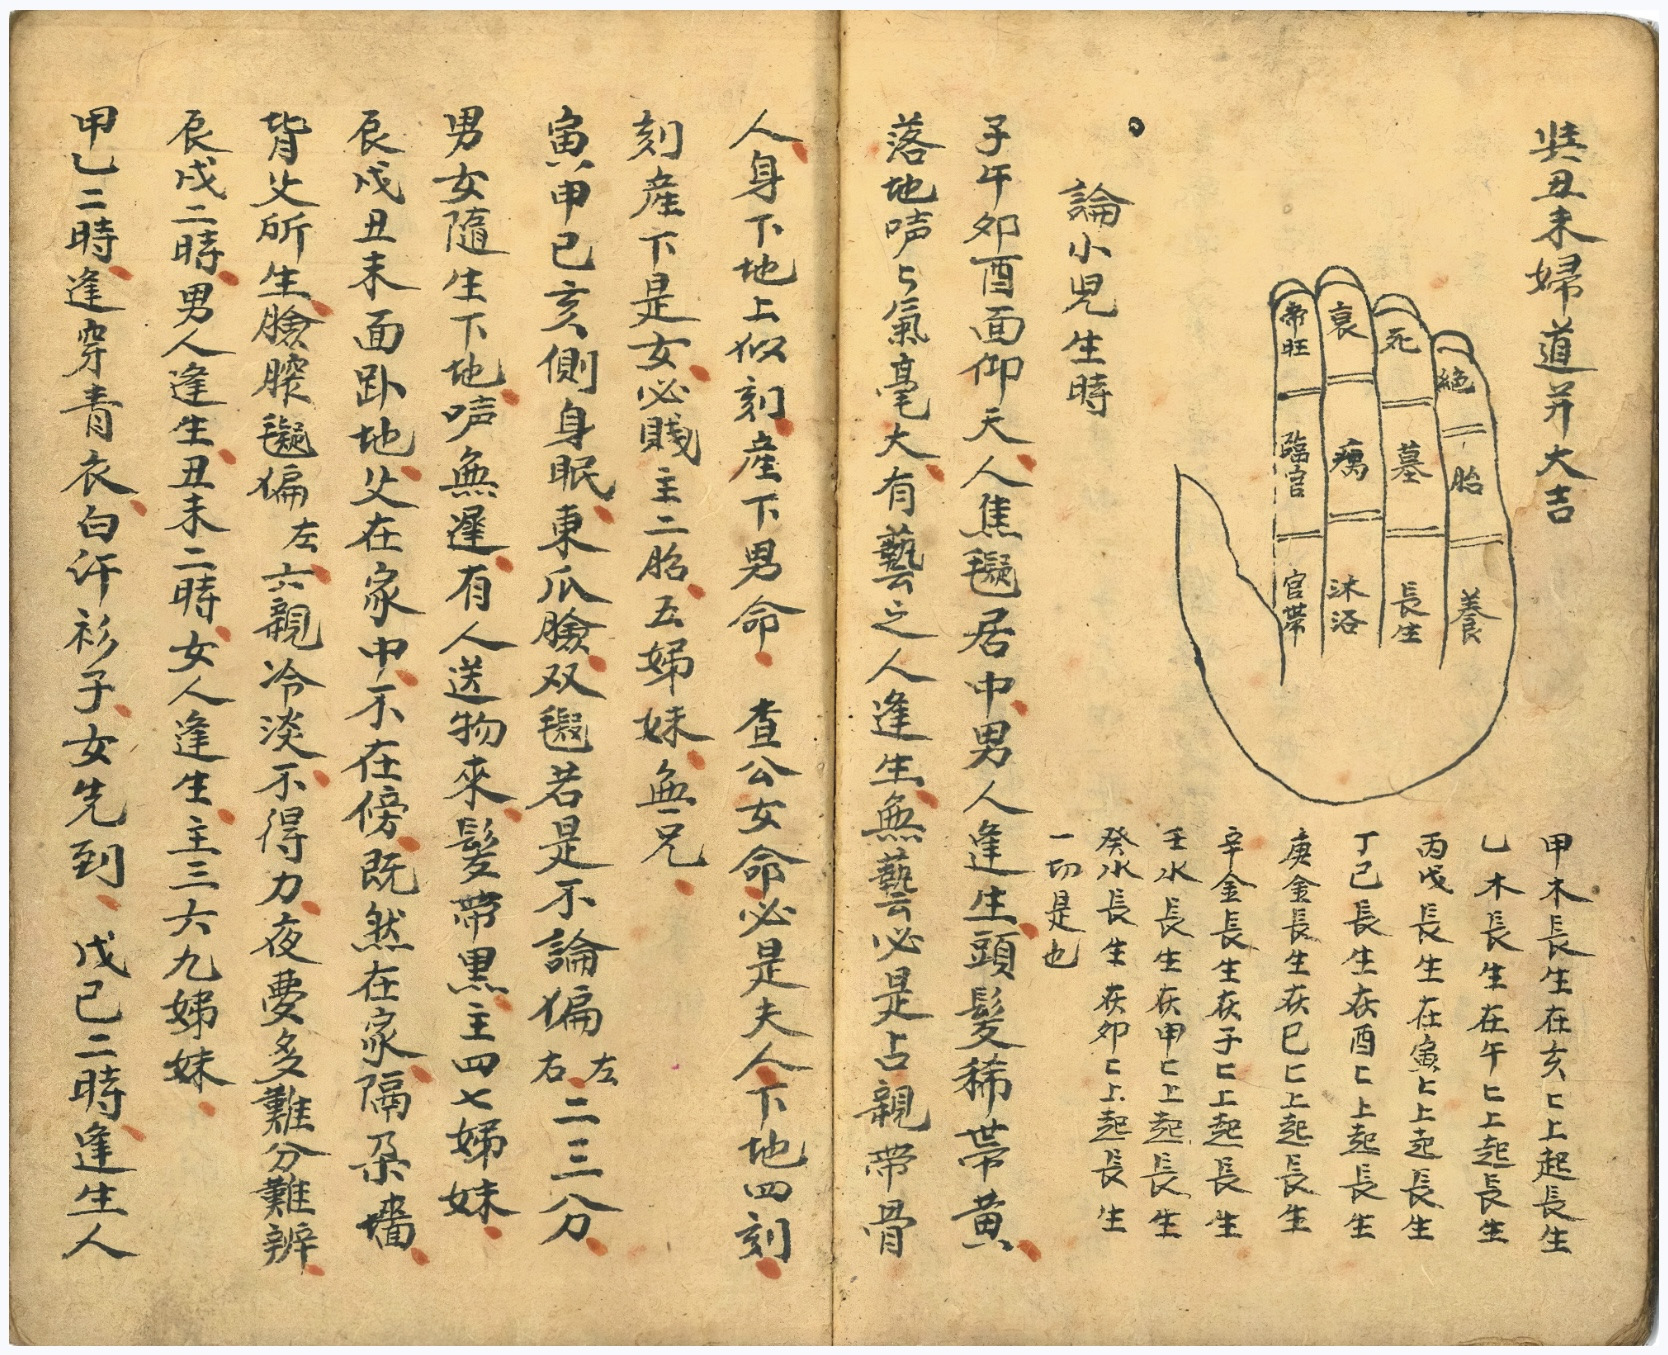 丑未婦道并大吉
帝旺 衰 死 絕
臨官 墓 胎
官帶 沐浴 長生 養
甲木長生在亥匕上起長生
乙木長生在午匕上起長生
丙戊長生在寅匕上起長生
丁己長生在酉匕上起長生
庚金長生在巳匕上起長生
辛金長生在子匕上起長生
壬水長生在申匕上起長生
癸水長生在卯匕上起長生
一切是也
論小児生時
子午卯酉面仰天人焦居中男人逢生頭髮稀帶黄
落地声匕氣毫大有藝之人逢生無藝必是占親帶骨
人身下地上似刻産下男命 查公女命必是夫人下地四刻
刻産下是女必賤主二胎五娣妹無兄
寅申巳亥側身眠東瓜臉双若是不論偏左右二三分
男女隨生下地声無遲有人送物來髮帶黒主四七娣妹
辰戌丑未面卧地父在家中不在傍既然在家隔朶墻
背父所生臉膣偏左六親冷淡不得力夜夢多難分難辨
辰戌二時男人逢生丑未二時女人逢生主三六九娣妹
甲乙二時逢穿青衣白汗衫子女先到 戊己二時逢生人